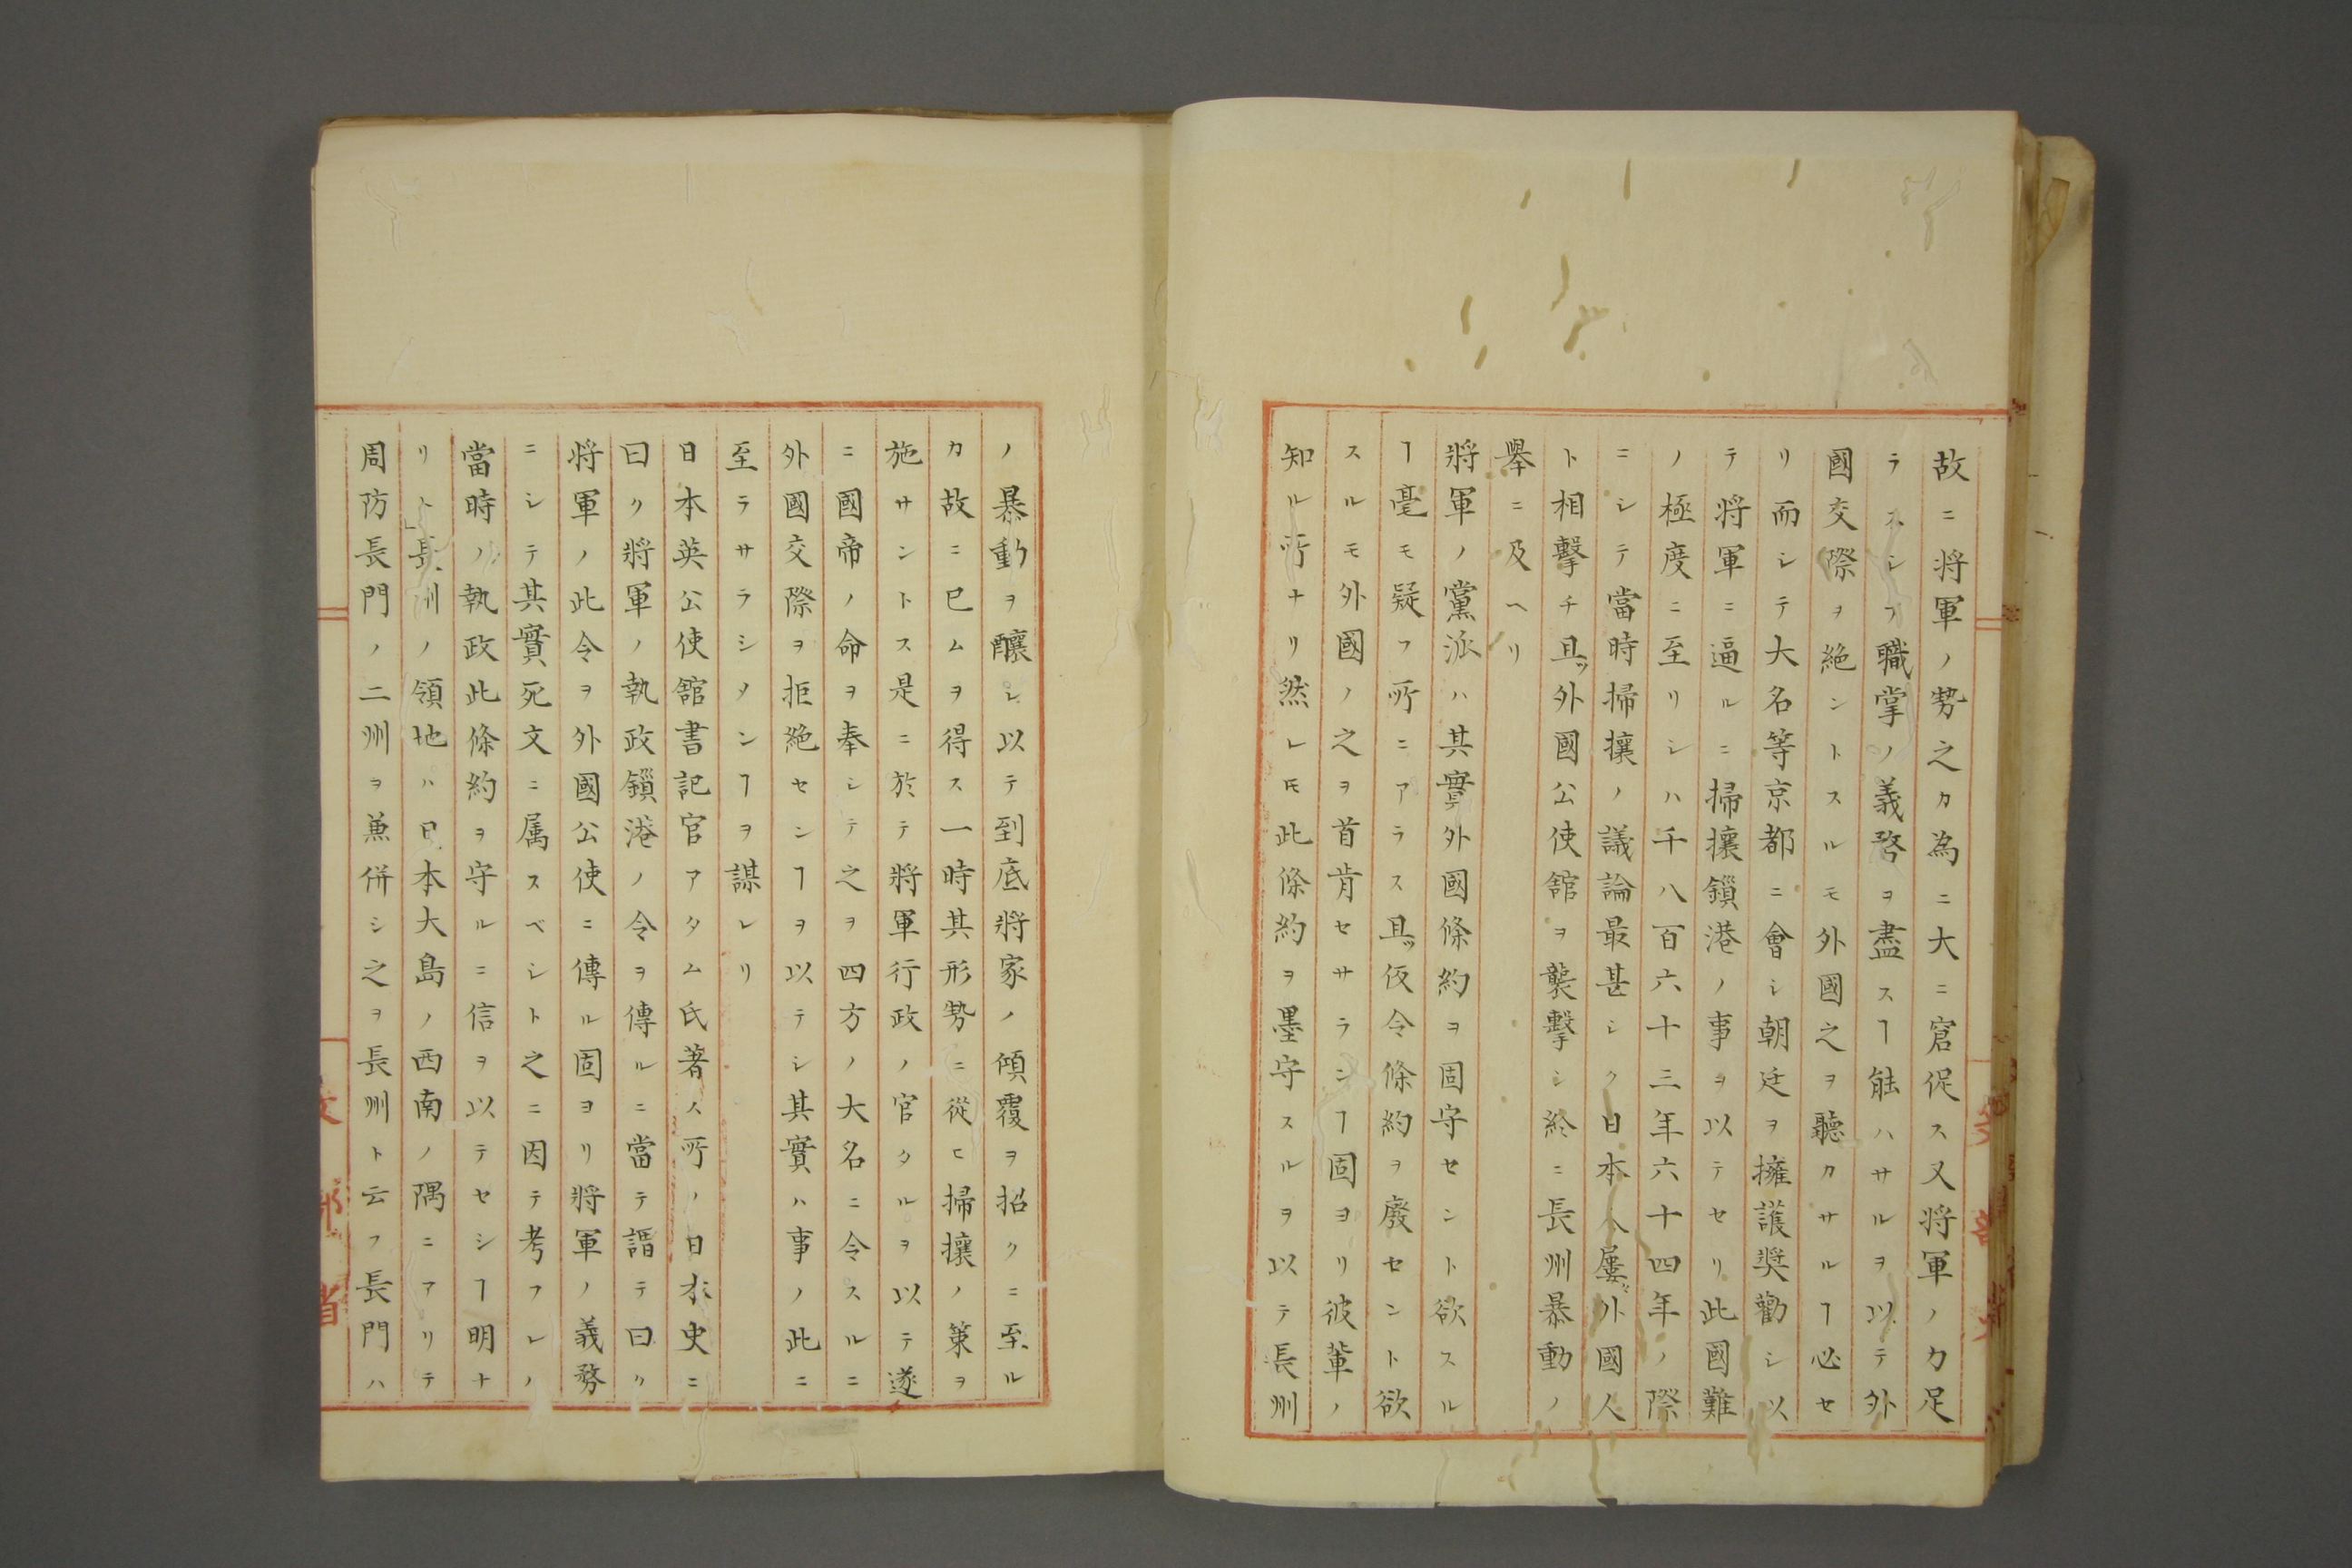 故ニ将軍ノ勢之カ為ニ大ニ窘促ス又将軍ノ力足
ラスシテ職掌ノ義務ヲ盡スヿ能ハサルヲ以テ外
國交際ヲ絶ントスルモ外國之ヲ聽カサルヿ必セ
リ而シテ大名等京都ニ會シ朝廷ヲ擁護奨勸シ以
テ将軍ニ逼ルニ掃攘鎖港ノ事ヲ以テセリ此國難
ノ極度ニ至リシハ千八百六十三年六十四年ノ際
ニシテ當時掃攘ノ議論最甚シク日本人屢〻外國人
ト相擊チ且ツ外國公使舘ヲ襲擊シ終ニ長州暴動ノ
舉ニ及ヘリ
將軍ノ黨派ハ其實外國條約ヲ固守セント欲スル
ヿ毫モ疑フ所ニアラス且ツ仮令條約ヲ廢セント欲
スルモ外國ノ之ヲ首肯セサランヿ固ヨリ彼輩ノ
知ル所ナリ然レ𪜈此條約ヲ墨守スルヲ以テ長州
ノ暴動ヲ釀シ以テ到底將家ノ傾覆ヲ招クニ至ル
カ故ニ已ムヲ得ス一時其形勢ニ從ヒ掃攘ノ策ヲ
施サントス是ニ於テ將軍行政ノ官タルヲ以テ遂
ニ國帝ノ命ヲ奉シテ之ヲ四方ノ大名ニ令スルニ
外國交際ヲ拒絶センヿヲ以テシ其實ハ事ノ此ニ
至ラサラシメンヿヲ謀レリ
日本英公使舘書記官アダム氏著ス所ノ日本史ニ
曰ク將軍ノ執政鎖港ノ令ヲ傳ルニ當テ謟テ曰ク
將軍ノ此令ヲ外國公使ニ傳ル固ヨリ將軍ノ義務
ニシテ其實死文ニ属スベシト之ニ因テ考フレハ
當時ノ執政此條約ヲ守ルニ信ヲ以テセシヿ明ナ
リト長州ノ領地ハ日本大島ノ西南ノ隅ニアリテ
周防長門ノ二州ヲ兼併シ之ヲ長州ト云フ長門ハ
文部省